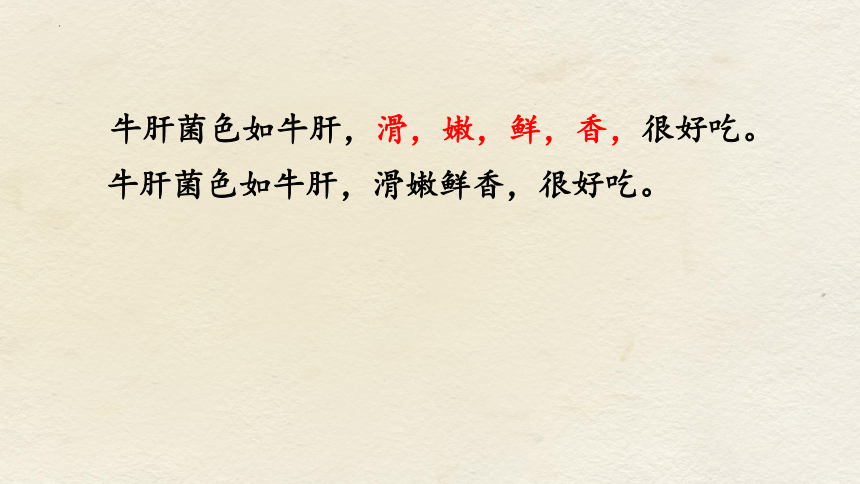 牛肝菌色如牛肝，滑，嫩，鲜，香，很好吃。
牛肝菌色如牛肝，滑嫩鲜香，很好吃。